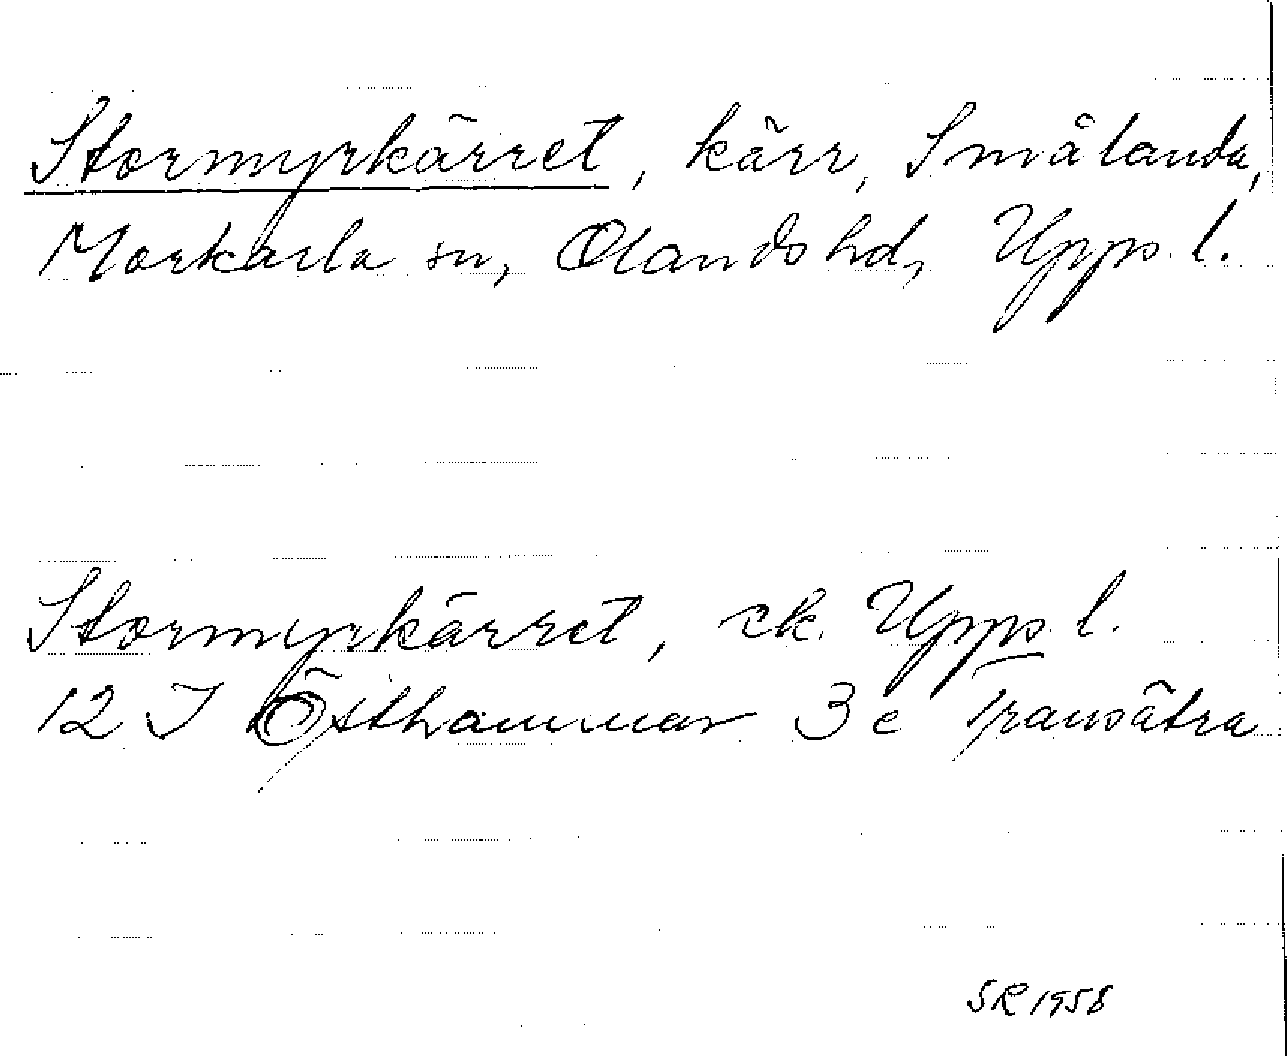 Stormyrkärret, kärr, Smålanda,
Morkarla sn, Olands hd, Upps. l.
Stormyrkärret, ek. Upps. l.
12 I Östhammar 3 e Transätra
SR 1958